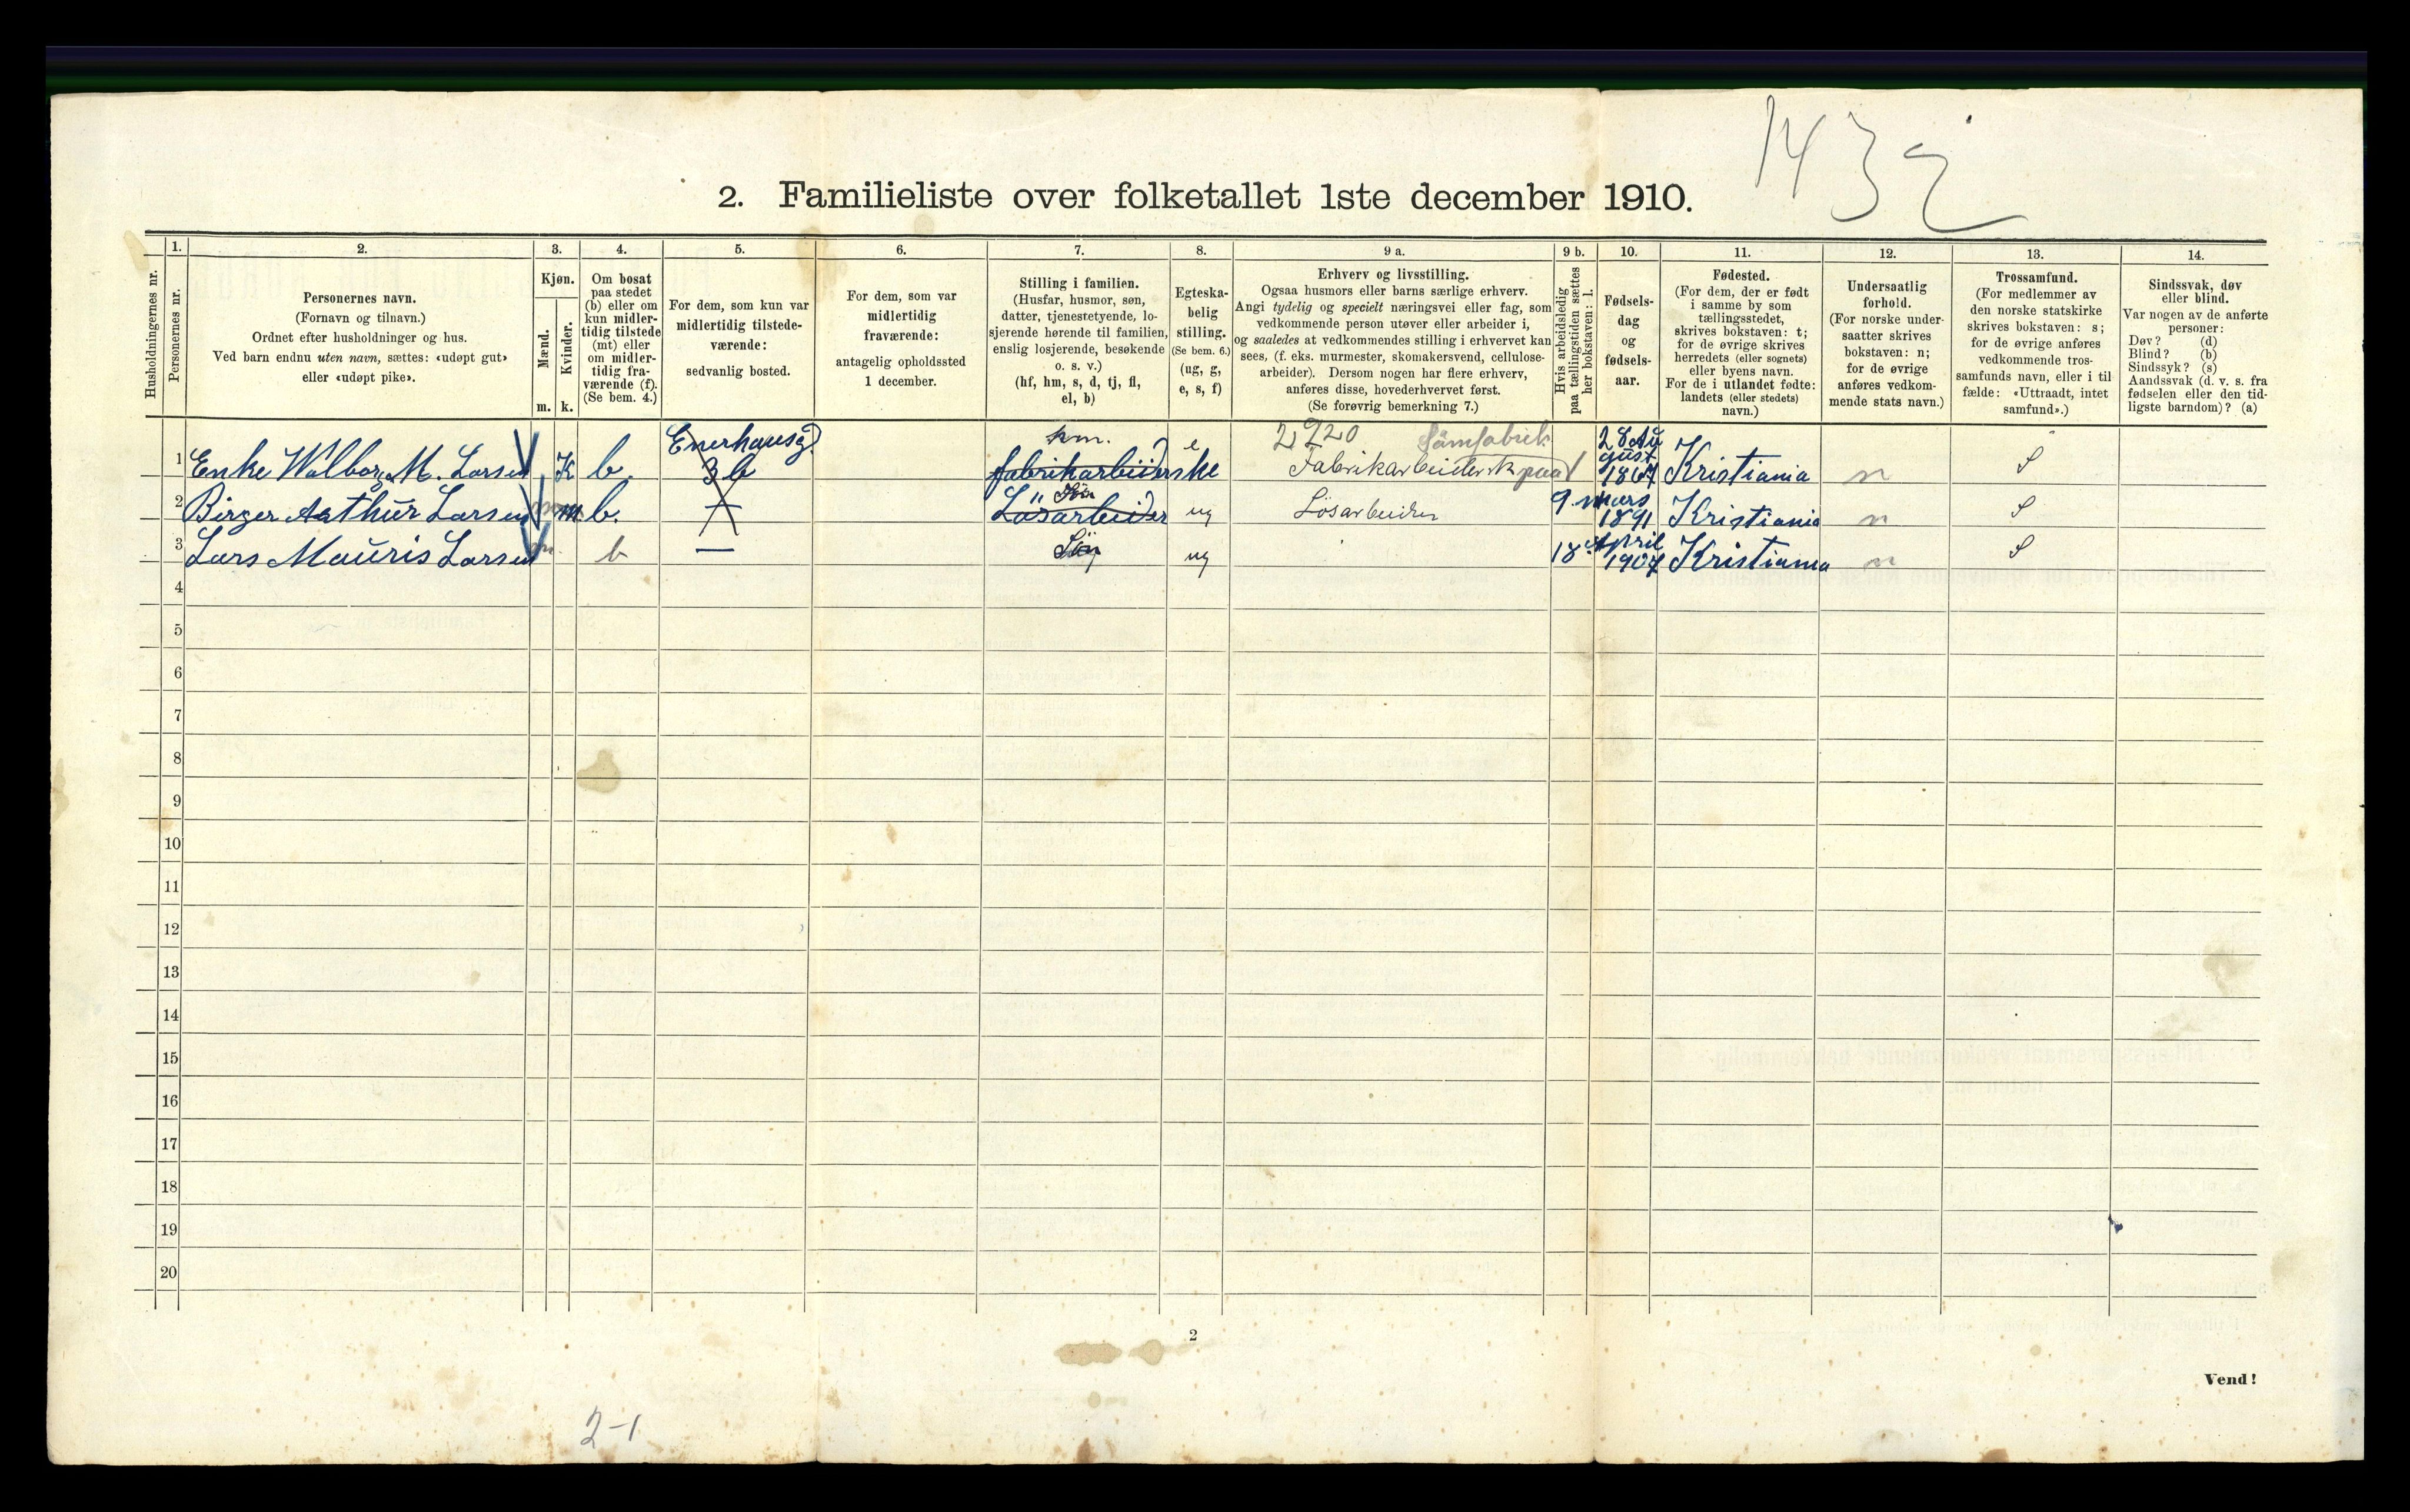 1432
2. Familieliste over folketallet 1ste december 1910.
Husholdningernes nr.
1.
Personernes nr.
2.
Personernes navn.
(Fornavn og tilnavn.)
Ordnet efter husholdninger og hus.
Ved barn endnu uten navn, sættes: «udøpt gut»
eller «udøpt pike».
3.
Kjøn.
Mænd.
Kvinder.
m. k.
4.
Om bosat
paa stedet
(b) eller om
kun midler-
tidig tilstede
(mt) eller
om midler-
tidig fra-
værende (f).
(Se bem. 4.)
5.
For dem, som kun var
midlertidig tilstede-
værende:
sedvanlig bosted.
6.
For dem, som var
midlertidig
fraværende:
antagelig opholdssted
1 december.
7.
Stilling i familien.
(Husfar, husmor, søn,
datter, tjenestetyende, lo-
sjerende hørende til familien,
enslig losjerende, besøkende
o. s. v.)
(hf, hm, s, d, tj, fl,
el, b)
8.
Egteska-
belig
stilling.
(Se bem. 6.)
(ug, g,
e, s, f)
9 a.
Erhverv og livsstilling.
Ogsaa husmors eller barns særlige erhverv.
Angi tydelig og specielt næringsvei eller fag, som
vedkommende person utøver eller arbeider i,
og saaledes at vedkommendes stilling i erhvervet kan
sees, (f. eks. murmester, skomakersvend, cellulose-
arbeider). Dersom nogen har flere erhverv,
anføres disse, hovederhvervet først.
(Se forøvrig bemerkning 7.)
9 b.
Hvis arbeidsledig
paa tællingstiden sættes
her bokstaven: l.
10.
Fødsels-
dag
og
fødsels-
aar.
11.
Fødested.
(For dem, der er født
i samme by som
tællingsstedet,
skrives bokstaven: t;
for de øvrige skrives
herredets (eller sognets)
eller byens navn.
For de i utlandet fødte:
landets (eller stedets)
navn.)
12.
Undersaatlig
forhold.
(For norske under-
saatter skrives
bokstaven: n;
for de øvrige
anføres vedkom-
mende stats navn.)
13.
Trossamfund.
(For medlemmer av
den norske statskirke
skrives bokstaven: s;
for de øvrige anføres
vedkommende tros-
samfunds navn, eller i til
fælde: «Uttraadt, intet
samfund».)
14.
Sindssvak, døv
eller blind.
Var nogen av de anførte
personer:
Døv? (d)
Blind? (b)
Sindssyk? (s)
Aandssvak (d. v. s. fra
fødselen eller den tid-
ligste barndom)? (a)
1 Enke Walborg M. Larsen K b. Enerhausg. 3 b hm. fabrikarbeiderske e 2920 Fabrikarbeiderske paa Sømfabrik 28 August 1867 Kristiania n S
2 Birger Arthur Larsen m b. Løsarbeider Søn ug Løsarbeider 9. mars 1891 Kristiania n S
3 Lars Mauris Larsen m. b — Søn ug 18 April 1907 Kristiania n S
4
5
6
7
8
9
10
11
12
13
14
15
16
17
18
19
20
2
Vend!
2-1